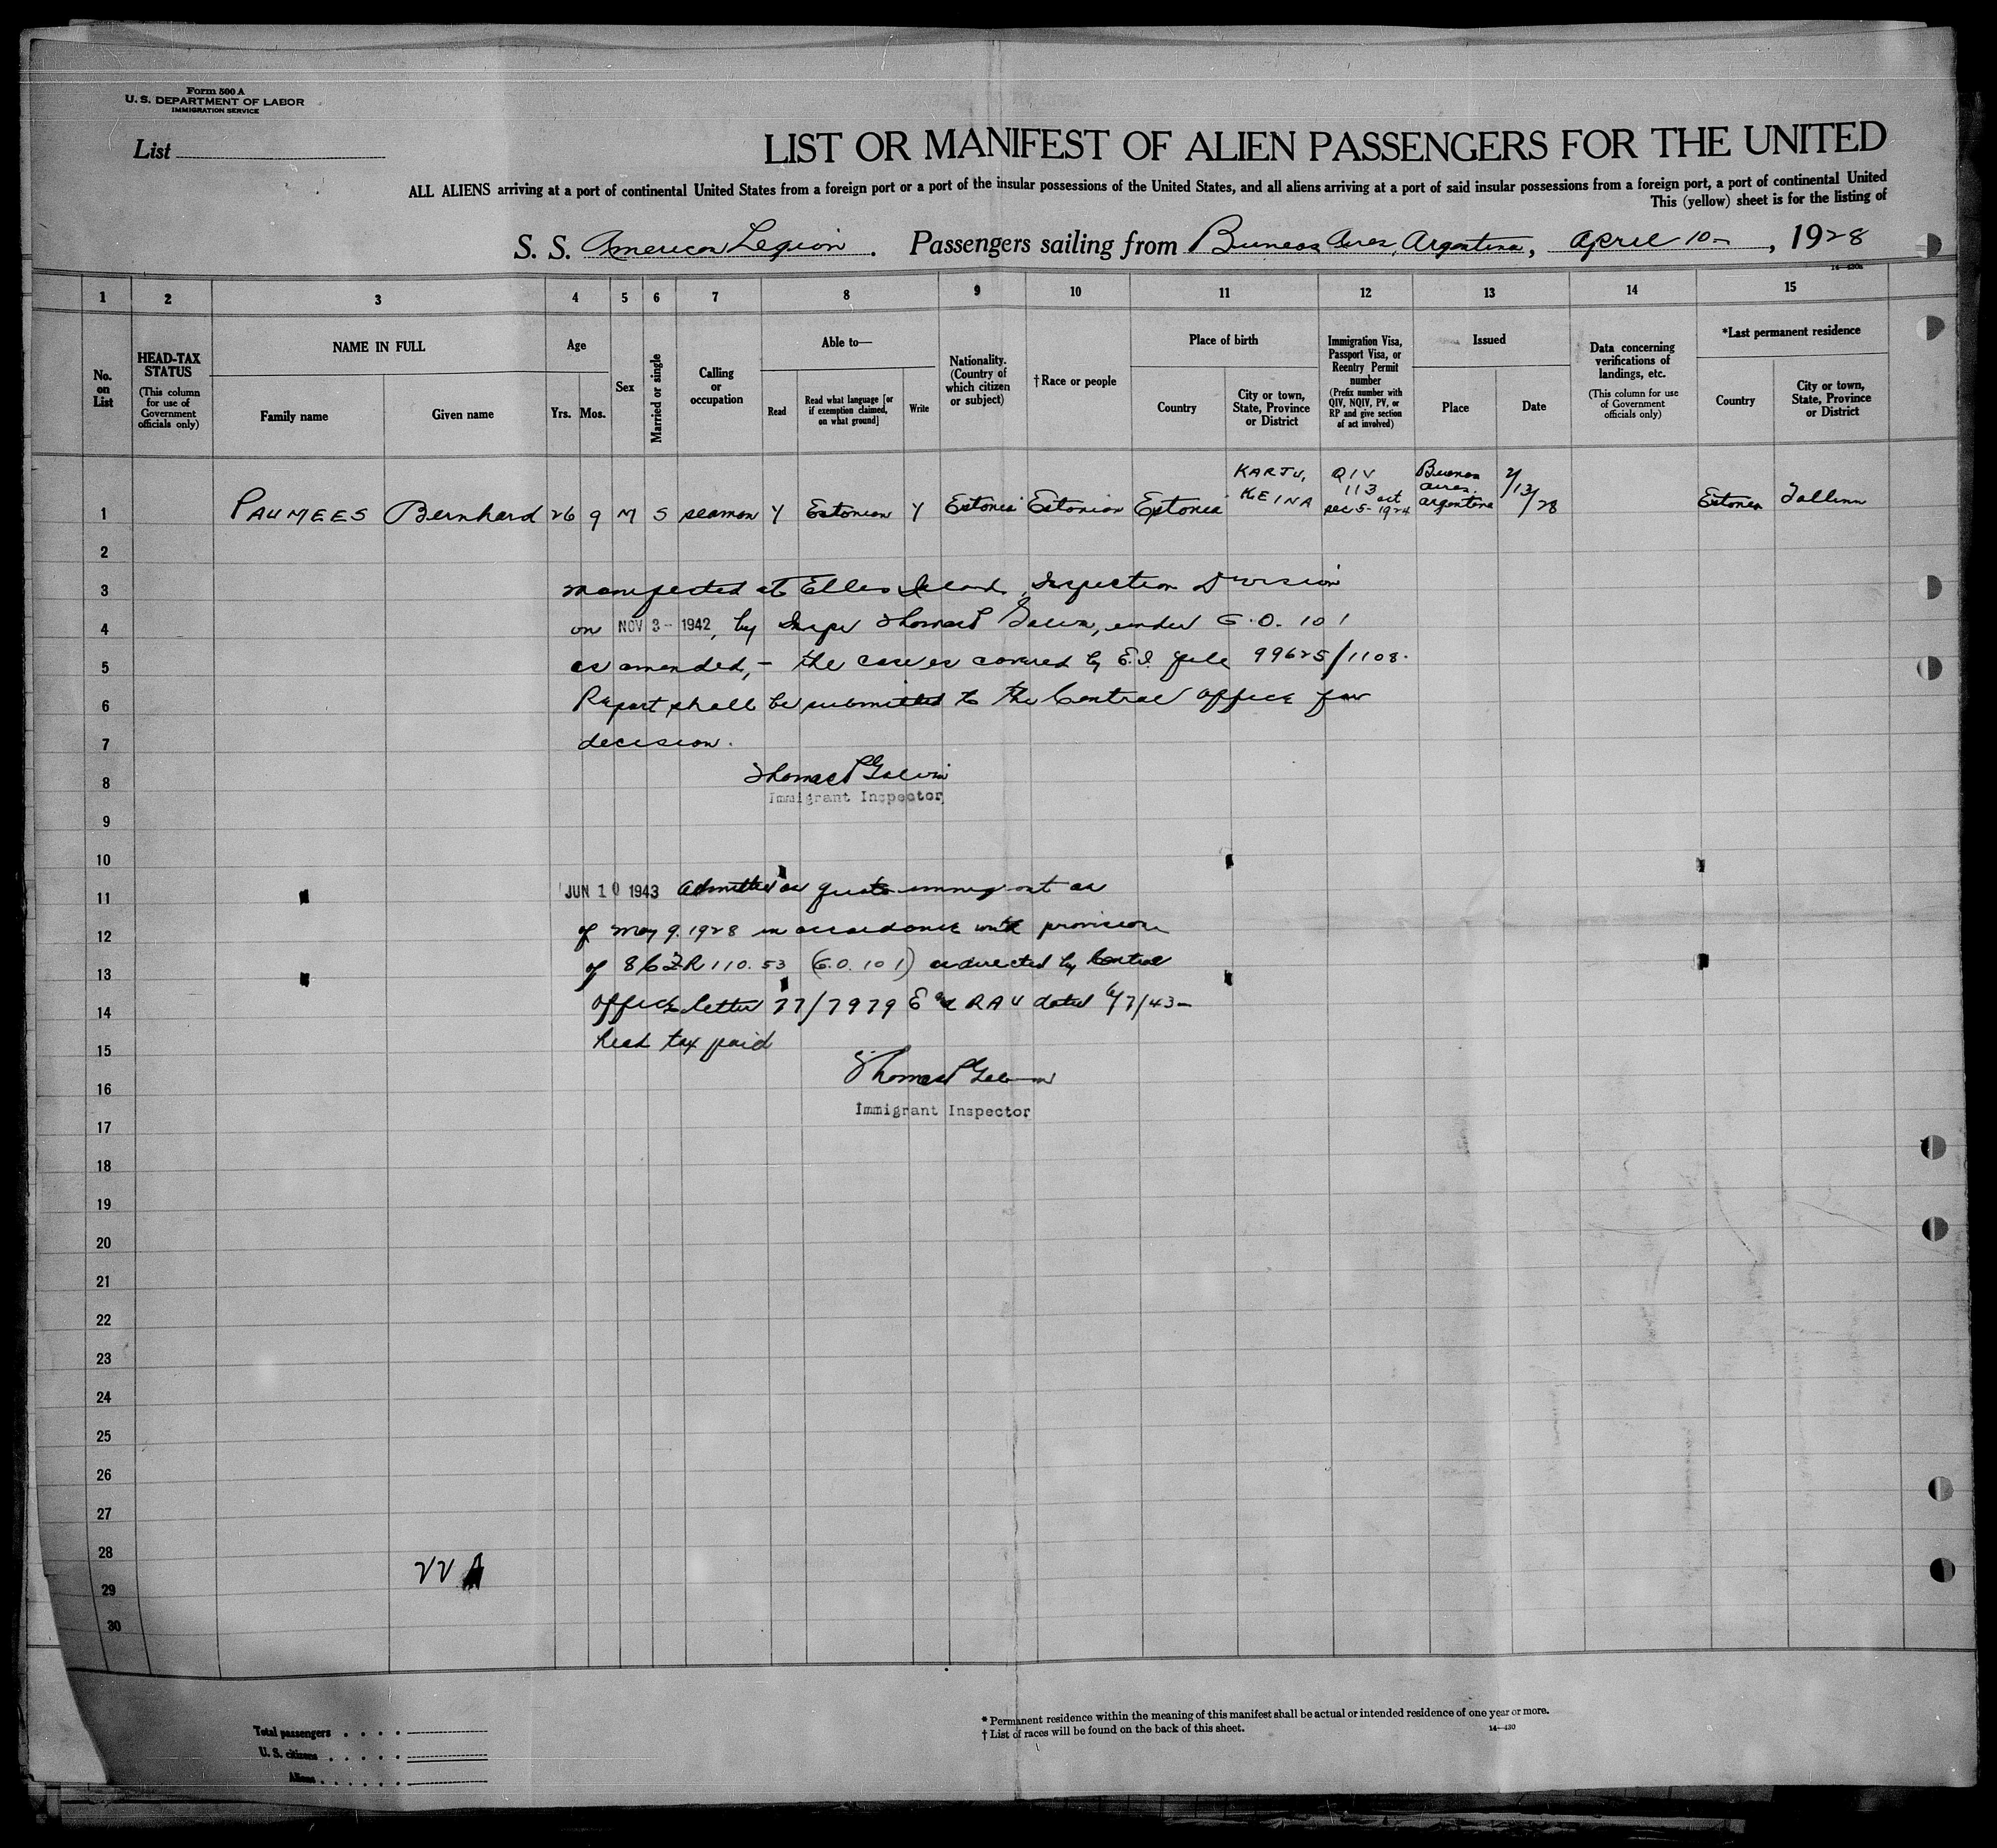 Form 500 A
U. S. DEPARTMENT OF LABOR
IMMIGRATION SERVICE
List
LIST OR MANIFEST OF ALIEN PASSENGERS FOR THE UNITED
ALL ALIENS arriving at a port of continental United States from a foreign port or a port of the insular possessions of the United States, and all aliens arriving at a port of said insular possessions from a foreign port, a port of continental United
This (yellow) sheet is for the listing of
S. S. American Legion. Passengers sailing from Buenos Aires, Argentina, April 10-, 1928
14—430a
1 2 3 4 5 6 7 8 9 10 11 12 13 14 15
No. on List
HEAD-TAX STATUS
(This column for use of Government officials only)
NAME IN FULL
Family name
Given name
Age
Yrs. Mos.
Sex
Married or single
Calling or occupation
Able to—
Read
Read what language [or if exemption claimed, on what ground]
Write
Nationality. (Country of which citizen or subject)
†Race or people
Place of birth
Country
City or town, State, Province or District
Immigration Visa, Passport Visa, or Reentry Permit number
(Prefix number with QIV, NQIV, PV, or RP and give section of act involved)
Issued
Place
Date
Data concerning verifications of landings, etc.
(This column for use of Government officials only)
*Last permanent residence
Country
City or town, State, Province or District
1 PAUMEES Bernhard 26 9 M S seaman Y Estonian Y Estonia Estonian Estonia KARJU, KEINA QIV 113 sec 5- act 1924 Buenos Aires, Argentina 2/13/28 Estonia Tallinn
2
3 manifested at Ellis Island, Inspection Division
4 on NOV 3 - 1942, by Inspr Thomas P Galvin, under G.O. 101
5 as amended, - the case is covered by E.I. file 99625/1108.
6 Report shall be submitted to the Central Office for
7 decision.
8 Thomas P Galvin
Immigrant Inspector
9
10
11 JUN 10 1943 Admitted as quota immigrant as
12 of May 9, 1928 in accordance with provision
13 of 8 CFR 110.53 (G.O. 101) as directed by Central
14 Office letter 77/7979 E and RAU dated 6/7/43-
15 head tax paid
16 Thomas P Galvin
Immigrant Inspector
17
18
19
20
21
22
23
24
25
26
27
28
29
30
Total passengers . . . .
U. S. citizens . . . . .
Aliens . . . . . .
* Permanent residence within the meaning of this manifest shall be actual or intended residence of one year or more.
† List of races will be found on the back of this sheet.
14—430